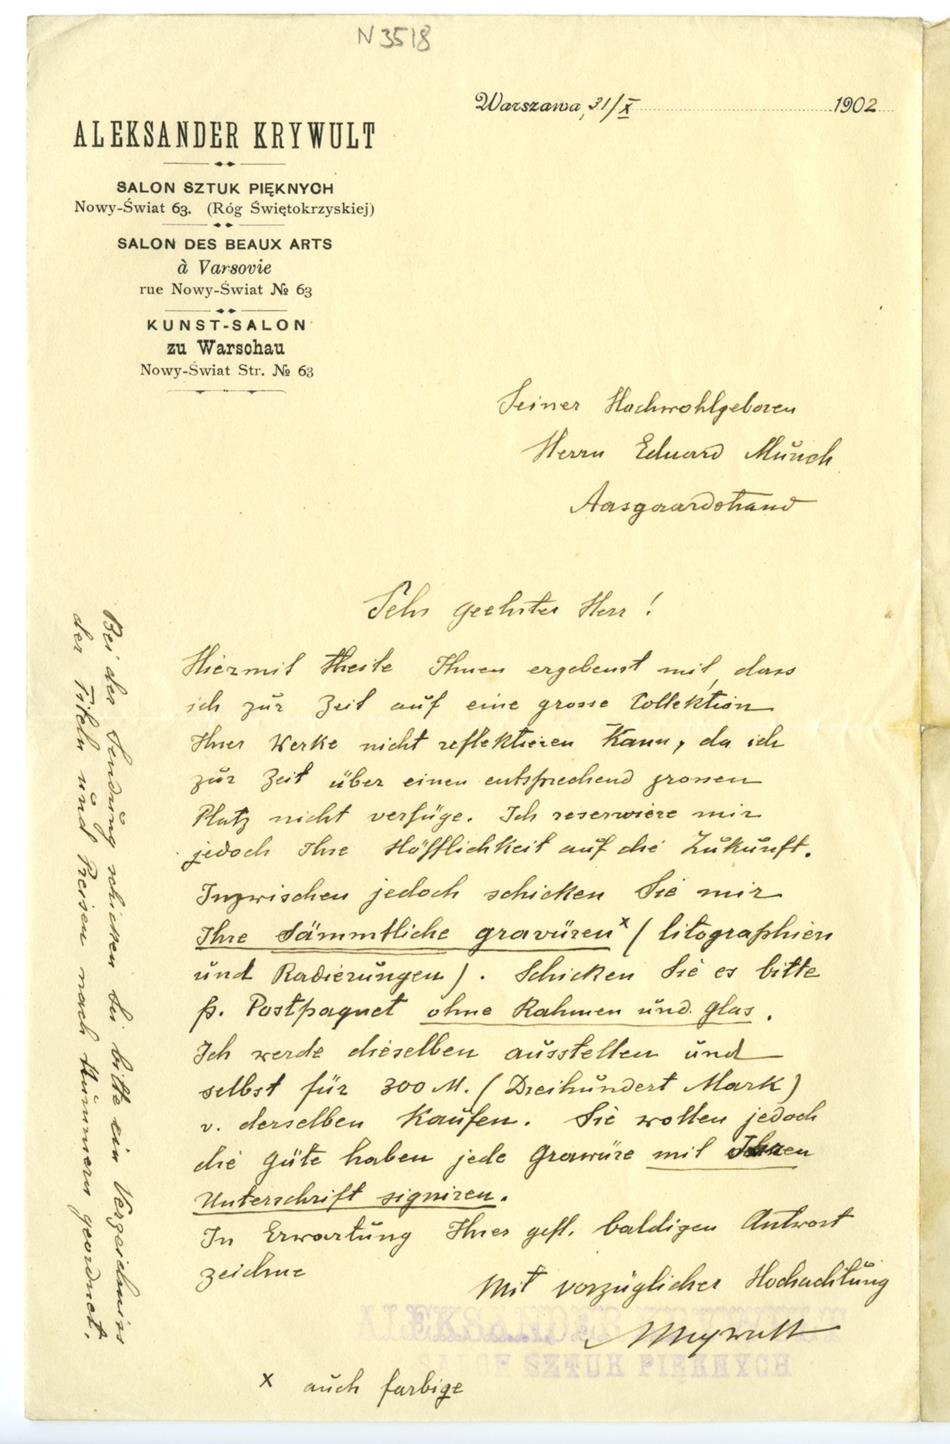 N 3518
Warszawa, 31/X 1902
ALEKSANDER KRYWULT
SALON SZTUK PIĘKNYCH
Nowy-Świat 63. (Róg Świętokrzyskiej)
SALON DES BEAUX ARTS
à Varsovie
rue Nowy-Świat № 63
KUNST-SALON
zu Warschau
Nowy-Świat Str. № 63
Seiner Hochwohlgeboren
Herrn Eduard Münch
Aasgaardstrand
Sehr geehrter Herr!
Hiermit theile Ihnen ergebenst mit, dass
ich zur Zeit auf eine grosse Collektion
Ihrer Werke nicht reflektieren kann, da ich
zur Zeit über einen entsprechend grossen
Platz nicht verfüge. Ich reserwiere mir
jedoch Ihre Höfflichkeit auf die Zukunft.
Inzwischen jedoch schicken Sie mir
Ihre sämmtliche gravüren x (litographien
und Radierungen). Schicken Sie es bitte
p. Postpaquet ohne Rahmen und glas.
Ich werde dieselben ausstellen und
selbst für 300 M. (Dreihundert Mark)
v. derselben kaufen. Sie wollen jedoch
die Güte haben jede Grawüre mit Ihren
Unterschrift signiren.
In Erwartung Ihrer gefl. baldigen Antwort
zeichne
Mit vorzüglicher Hochachtung
AKrywult
ALEKSANDER KRYWULT
SALON SZTUK PIĘKNYCH
x auch farbige
Bei der Sendung schicken Sie bitte ein Verzeichniss
der Titeln und Preisen nach Nummern geordnet.